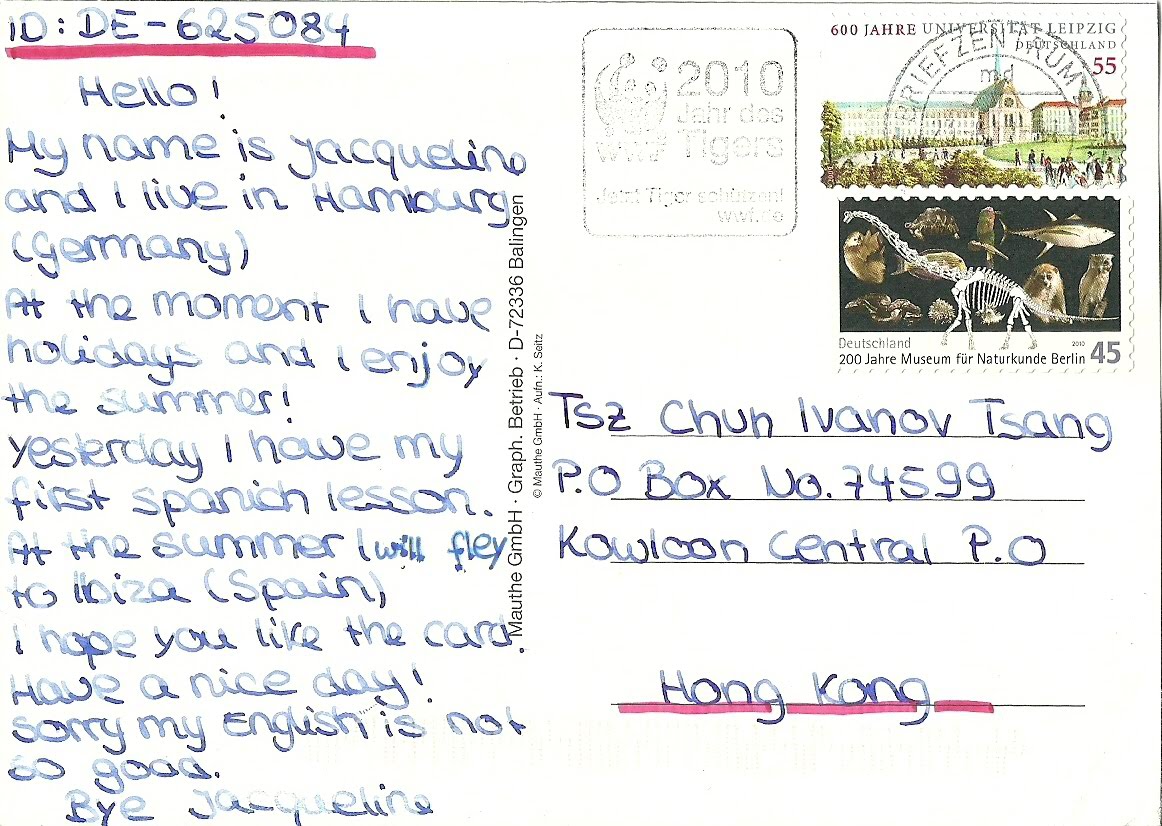 ID: DE-625084
Hello!
My name is Jacqueline
and I live in Hamburg
(Germany)
At the moment I have
holidays and I enjoy
the summer!
Yesterday I have my
first spanich lesson.
At the summer I will fley
to Ibiza (Spain)
I hope you like the card.
Have a nice day!
Sorry my English is not
so good.
Bye Jacqueline
Mauthe GmbH · Graph. Betrieb · D-72336 Balingen
© Mauthe GmbH · Aufn.: K. Seitz
2010
Jahr des
Tigers
WWF
Jetzt Tiger schützen!
wwf.de
600 JAHRE UNIVERSITÄT LEIPZIG
DEUTSCHLAND
55
BRIEFZENTRUM
md
Deutschland 2010
200 Jahre Museum für Naturkunde Berlin 45
Tsz Chun Ivanov Tsang
P.O Box No. 74599
Kowloon Central P.O
Hong Kong